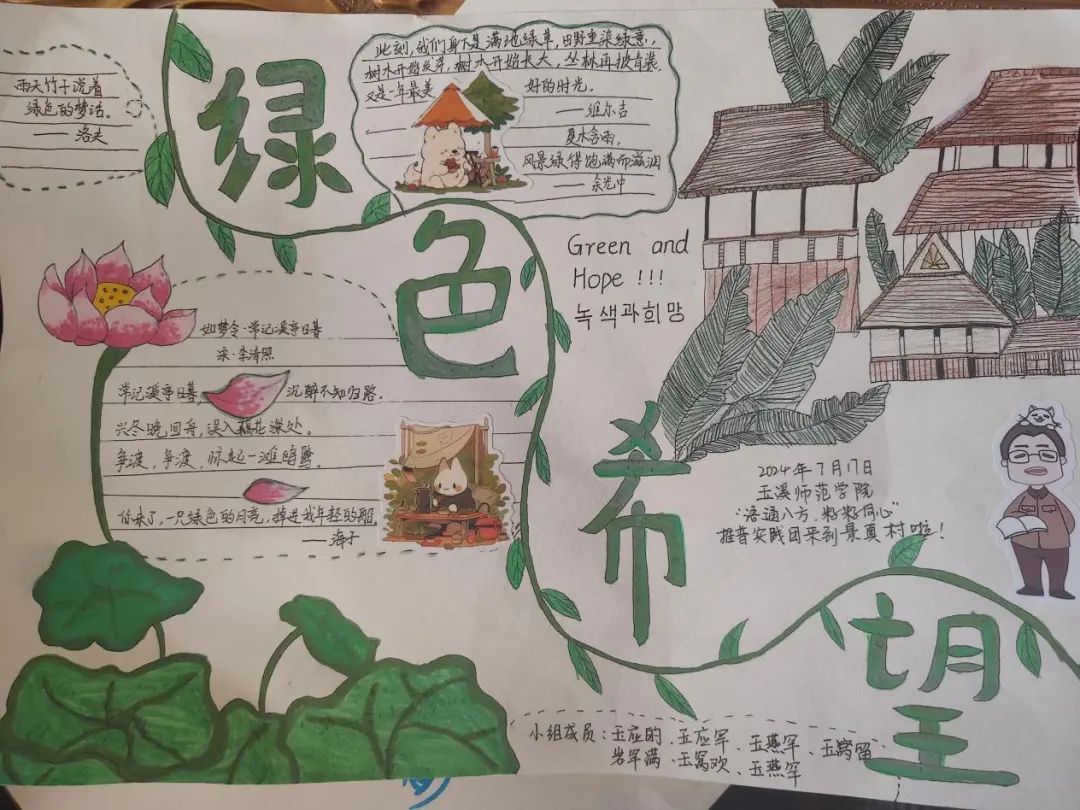 绿色希望
雨天竹子说着
绿色的梦话。
——洛夫
此刻,我们身下是满地绿草,田野重染绿意,
树木开始发芽,树木开始长大,丛林再披青装,
又是一年最美
好的时光。
——维尔吉
夏水含雨,
风景绿得饱满而滋润
——余光中
Green and
Hope !!!
녹색과희망
如梦令·常记溪亭日暮
宋·李清照
常记溪亭日暮, 沉醉不知归路。
兴尽晚回舟,误入藕花深处。
争渡,争渡,惊起一滩鸥鹭。
你来了,一只绿色的月亮,掉进我年轻的船
——海子
2024年7月17日
玉溪师范学院
“语通八方,籽籽同心”
推普实践团来到景真村啦!
小组成员:玉应的、玉应罕、玉燕罕、玉窝留
岩罕满、玉窝欢、玉燕罕